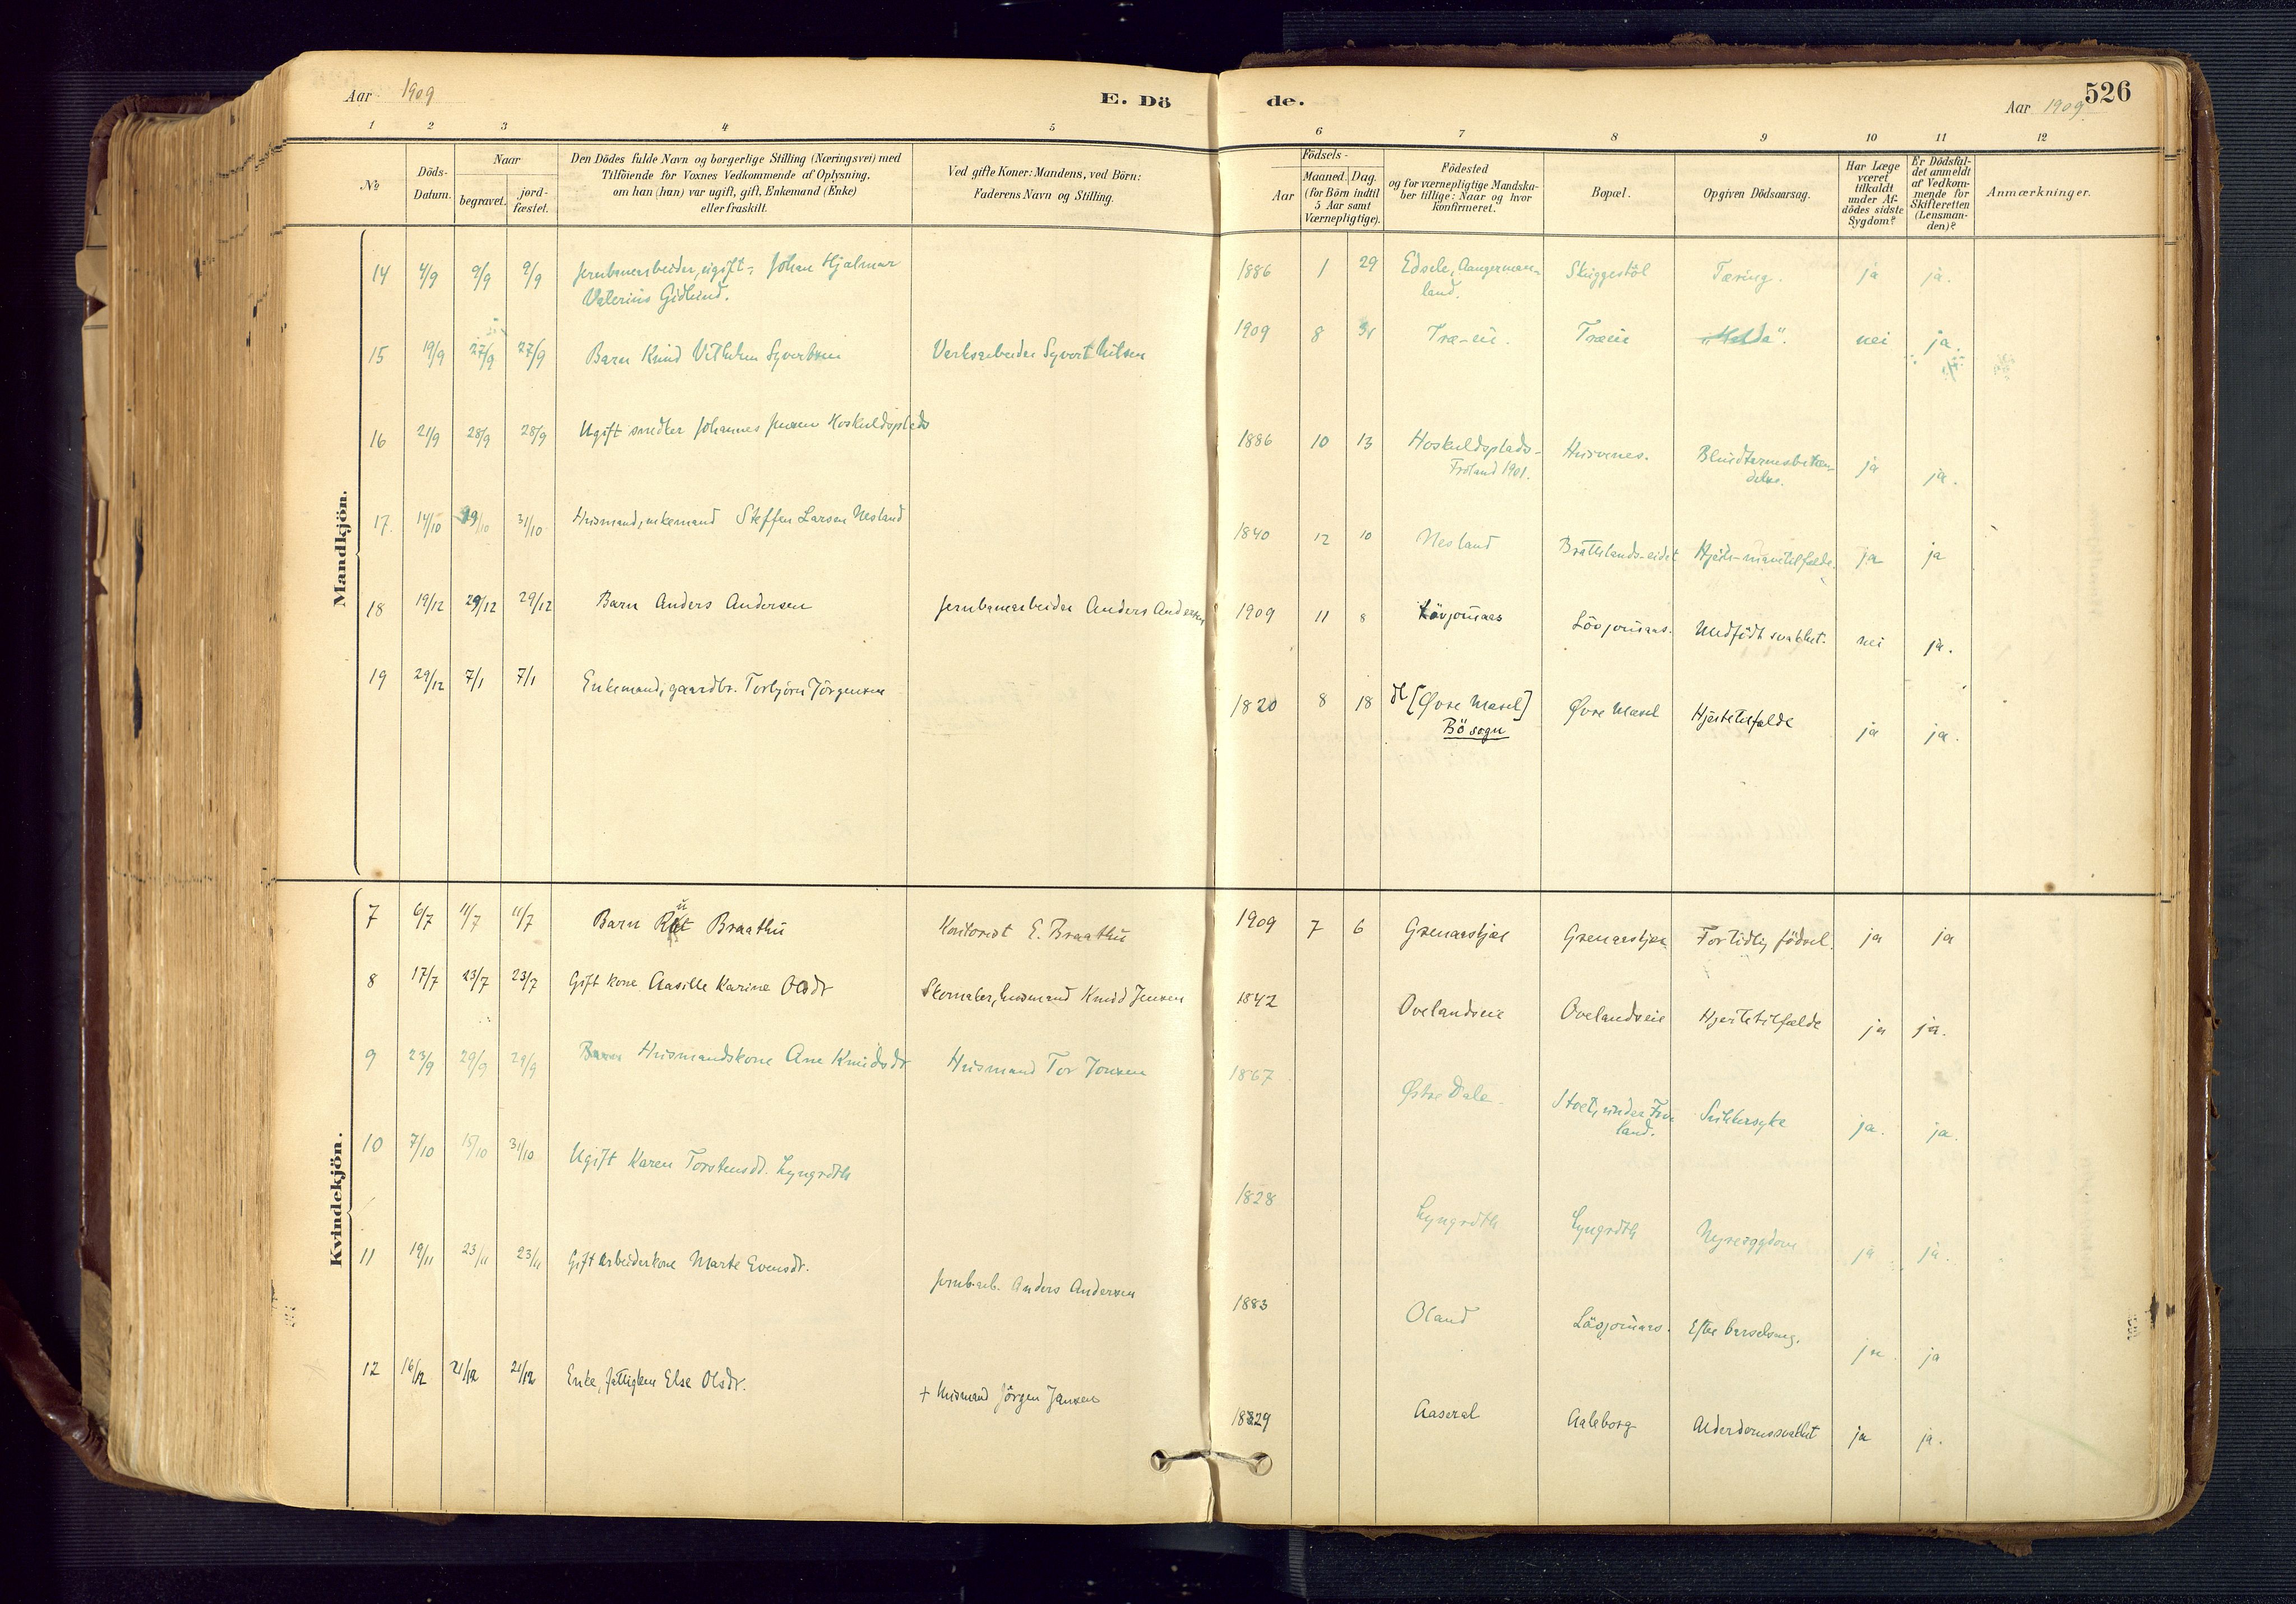 Aar 1909 E. Dö de. Aar 1909 526
1 2 3 4 5 6 7 8 9 10 11 12
No
Döds-Datum.
Naar
begravet. jord-fæstet.
Den Dödes fulde Navn og borgerlige Stilling (Næringsvei) med
Tilföiende for Voxnes Vedkommende af Oplysning,
om han (hun) var ugift, gift, Enkemand (Enke)
eller fraskilt.
Ved gifte Koner: Mandens, ved Börn:
Faderens Navn og Stilling.
Födsels-
Aar
Maaned. Dag.
(for Börn indtil
5 Aar samt
Værnepligtige).
Födested
og for værnepligtige Mandska-
ber tillige: Naar og hvor
konfirmeret.
Bopæl.
Opgiven Dödsaarsag.
Har Læge
været
tilkaldt
under Af-
dödes sidste
Sygdom?
Er Dödsfal-
det anmeldt
af Vedkom-
mende for
Skifteretten
(Lensman-
den)?
Anmærkninger.
Mandkjön.
14 4/9 9/9 9/9 Jernbanearbeider, ugift, Johan Hjalmar 1886 1 29 Edsele, Aangerman- Skuggestöl Tæring. ja ja.
Valerius Gidlund. land.
15 19/9 27/9 27/9 Barn Knud Vilhelm Syvertsen Verksarbeider Syvert Nilsen 1909 8 31 Træ-en. Træen nei ja.
16 21/9 28/9 28/9 Ugift snedker Johannes Jensen Hoskuldsplads 1886 10 13 Hoskuldsplads- Husvenes. Blindtarmsbetæn- ja ja.
Froland 1901. delse.
17. 14/10 19/10 31/10 Husmand, enkemand Steffen Larsen Nesland 1840 12 10 Nesland Brattlands-eidet ja ja
18 19/12 29/12 29/12 Barn Anders Andersen Jernbanearbeider Anders Andersen 1909 11 8 Lövjomaas Lövjomaas. Medfödt svakhet. nei ja.
19 29/12 7/1 7/1 Enkemand, gaardbr. Torbjörn Jörgensen 1820 8 18 [Øvre Masel] Øvre Masel Hjertetilfælde ja ja.
Bö sogn
Kvindekjön.
7 6/7 11/7 11/7 Barn Rut Braathen Kontorist E. Braathen 1909 7 6 Grenaaskjær Grenaaskjær For tidlig födsel. ja ja
8 17/7 23/7 23/7 Gift kone Aasille Karine Olsdr Skomaker, husmand Knud Jensen 1842 Ovelandseie Ovelandseie Hjertetilfælde ja ja.
9 23/9 29/9 29/9 Husmandskone Ane Knudsdr Husmand Tor Jonsen 1867 Østre Dale. Stoet, under Fro- Sukkersyke ja. ja.
land.
10 7/10 15/10 31/10 Ugift Karen Torstensd. Lyngroth 1828 Lyngroth Lyngroth Nyresygdom ja ja.
11 19/11 23/11 23/11 Gift arbeiderkone Marte Evensdr. Jernb.arb. Anders Andersen 1883 Oland Lövjomaas. Efter barselseng. ja ja
12 16/12 21/12 21/12 Enke, fattiglem Else Olsdr. + Husmand Jörgen Jensen 1829 Aaseral Aaleborg Alderdomssvakhet ja ja.